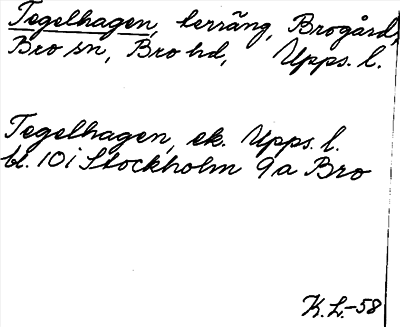 Tegelhagen, lerräng, Brogård,
Bro sn, Bro hd, Upps. l.
Tegelhagen, ek. Upps. l.
bl. 10 i Stockholm 9a Bro
K.L.-58